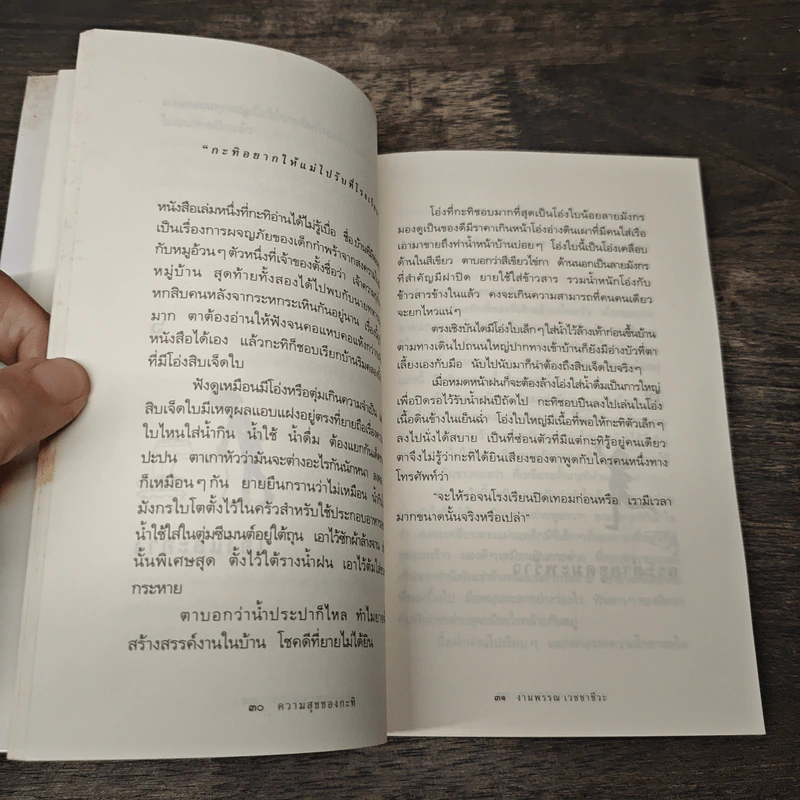 “กะทิอยากให้แม่ไปรับที่โรงเรียน
หนังสือเล่มหนึ่งที่กะทิอ่านได้ไม่รู้เบื่อ ชื่อ
เป็นเรื่องการผจญภัยของเด็กกำพร้าจากสงคราม
กับหมูอ้วนๆ ตัวหนึ่งที่เจ้าของตั้งชื่อว่า
หมู่บ้าน สุดท้ายทั้งสองได้ไปพบกับนายทหาร
หกสิบคนหลังจากระหกระเหินกันอยู่นาน
มาก ตาต้องอ่านให้ฟังจนคอแหบคอแห้งกว่า
หนังสือได้เอง แล้วกะทิก็ชอบเรียกบ้านริมคลอง
ที่มีโอ่งสิบเจ็ดใบ
ฟังดูเหมือนมีโอ่งหรือตุ่มเกินความจำเป็น
สิบเจ็ดใบมีเหตุผลแอบแฝงอยู่ตรงที่ยายถือเรื่อง
ใบไหนใส่น้ำกิน น้ำใช้ น้ำดื่ม ต้องแยกกัน
ปะปน ตาเกาหัวว่ามันจะต่างอะไรกันนักหนา
ก็เหมือนๆ กัน ยายยืนกรานว่าไม่เหมือน
มังกรใบโตตั้งไว้ในครัวสำหรับใช้ประกอบอาหาร
น้ำใช้ใส่ในตุ่มซีเมนต์อยู่ใต้ถุน เอาไว้ซักผ้าล้างจาน
นั้นพิเศษสุด ตั้งไว้ใต้รางน้ำฝน เอาไว้ดื่ม
กระหาย
ตาบอกว่าน้ำประปาก็ไหล ทำไม
สร้างสรรค์งานในบ้าน โชคดีที่ยายไม่ได้ยิน
๓๐ ความสุขของกะทิ
โอ่งที่กะทิชอบมากที่สุดเป็นโอ่งใบน้อยลายมังกร
มองดูเป็นของดีมีราคาเกินหน้าโอ่งอ่างดินเผาที่มีคนใส่เรือ
เอามาขายถึงท่าน้ำหน้าบ้านบ่อยๆ โอ่งใบนี้เป็นโอ่งเคลือบ
ด้านในสีเขียว ตาบอกว่าสีเขียวไข่กา ด้านนอกเป็นลายมังกร
ที่สำคัญมีฝาปิด ยายใช้ใส่ข้าวสาร รวมน้ำหนักโอ่งกับ
ข้าวสารข้างในแล้ว คงจะเกินความสามารถที่คนคนเดียว
จะยกไหวแน่ๆ
ตรงเชิงบันไดมีโอ่งใบเล็กๆ ใส่น้ำไว้ล้างเท้าก่อนขึ้นบ้าน
ตามทางเดินไปถนนใหญ่ปากทางเข้าบ้านก็ยังมีอ่างบัวที่ตา
เลี้ยงเองกับมือ นับไปนับมาก็น่าต้องถึงสิบเจ็ดใบจริงๆ
เมื่อหมดหน้าฝนก็จะต้องล้างโอ่งใส่น้ำดื่มเป็นการใหญ่
เพื่อปิดรอไว้รับน้ำฝนปีถัดไป กะทิชอบปีนลงไปเล่นในโอ่ง
เนื้อดินข้างในเย็นฉ่ำ โอ่งใบใหญ่มีเนื้อที่พอให้กะทิตัวเล็กๆ
ลงไปนั่งได้สบาย เป็นที่ซ่อนตัวที่มีแต่กะทิรู้อยู่คนเดียว
ตาจึงไม่รู้ว่ากะทิได้ยินเสียงของตาพูดกับใครคนหนึ่งทาง
โทรศัพท์ว่า
“จะให้รอจนโรงเรียนปิดเทอมก่อนหรือ เรามีเวลา
มากขนาดนั้นจริงหรือเปล่า”
๓๑ งามพรรณ เวชชาชีวะ